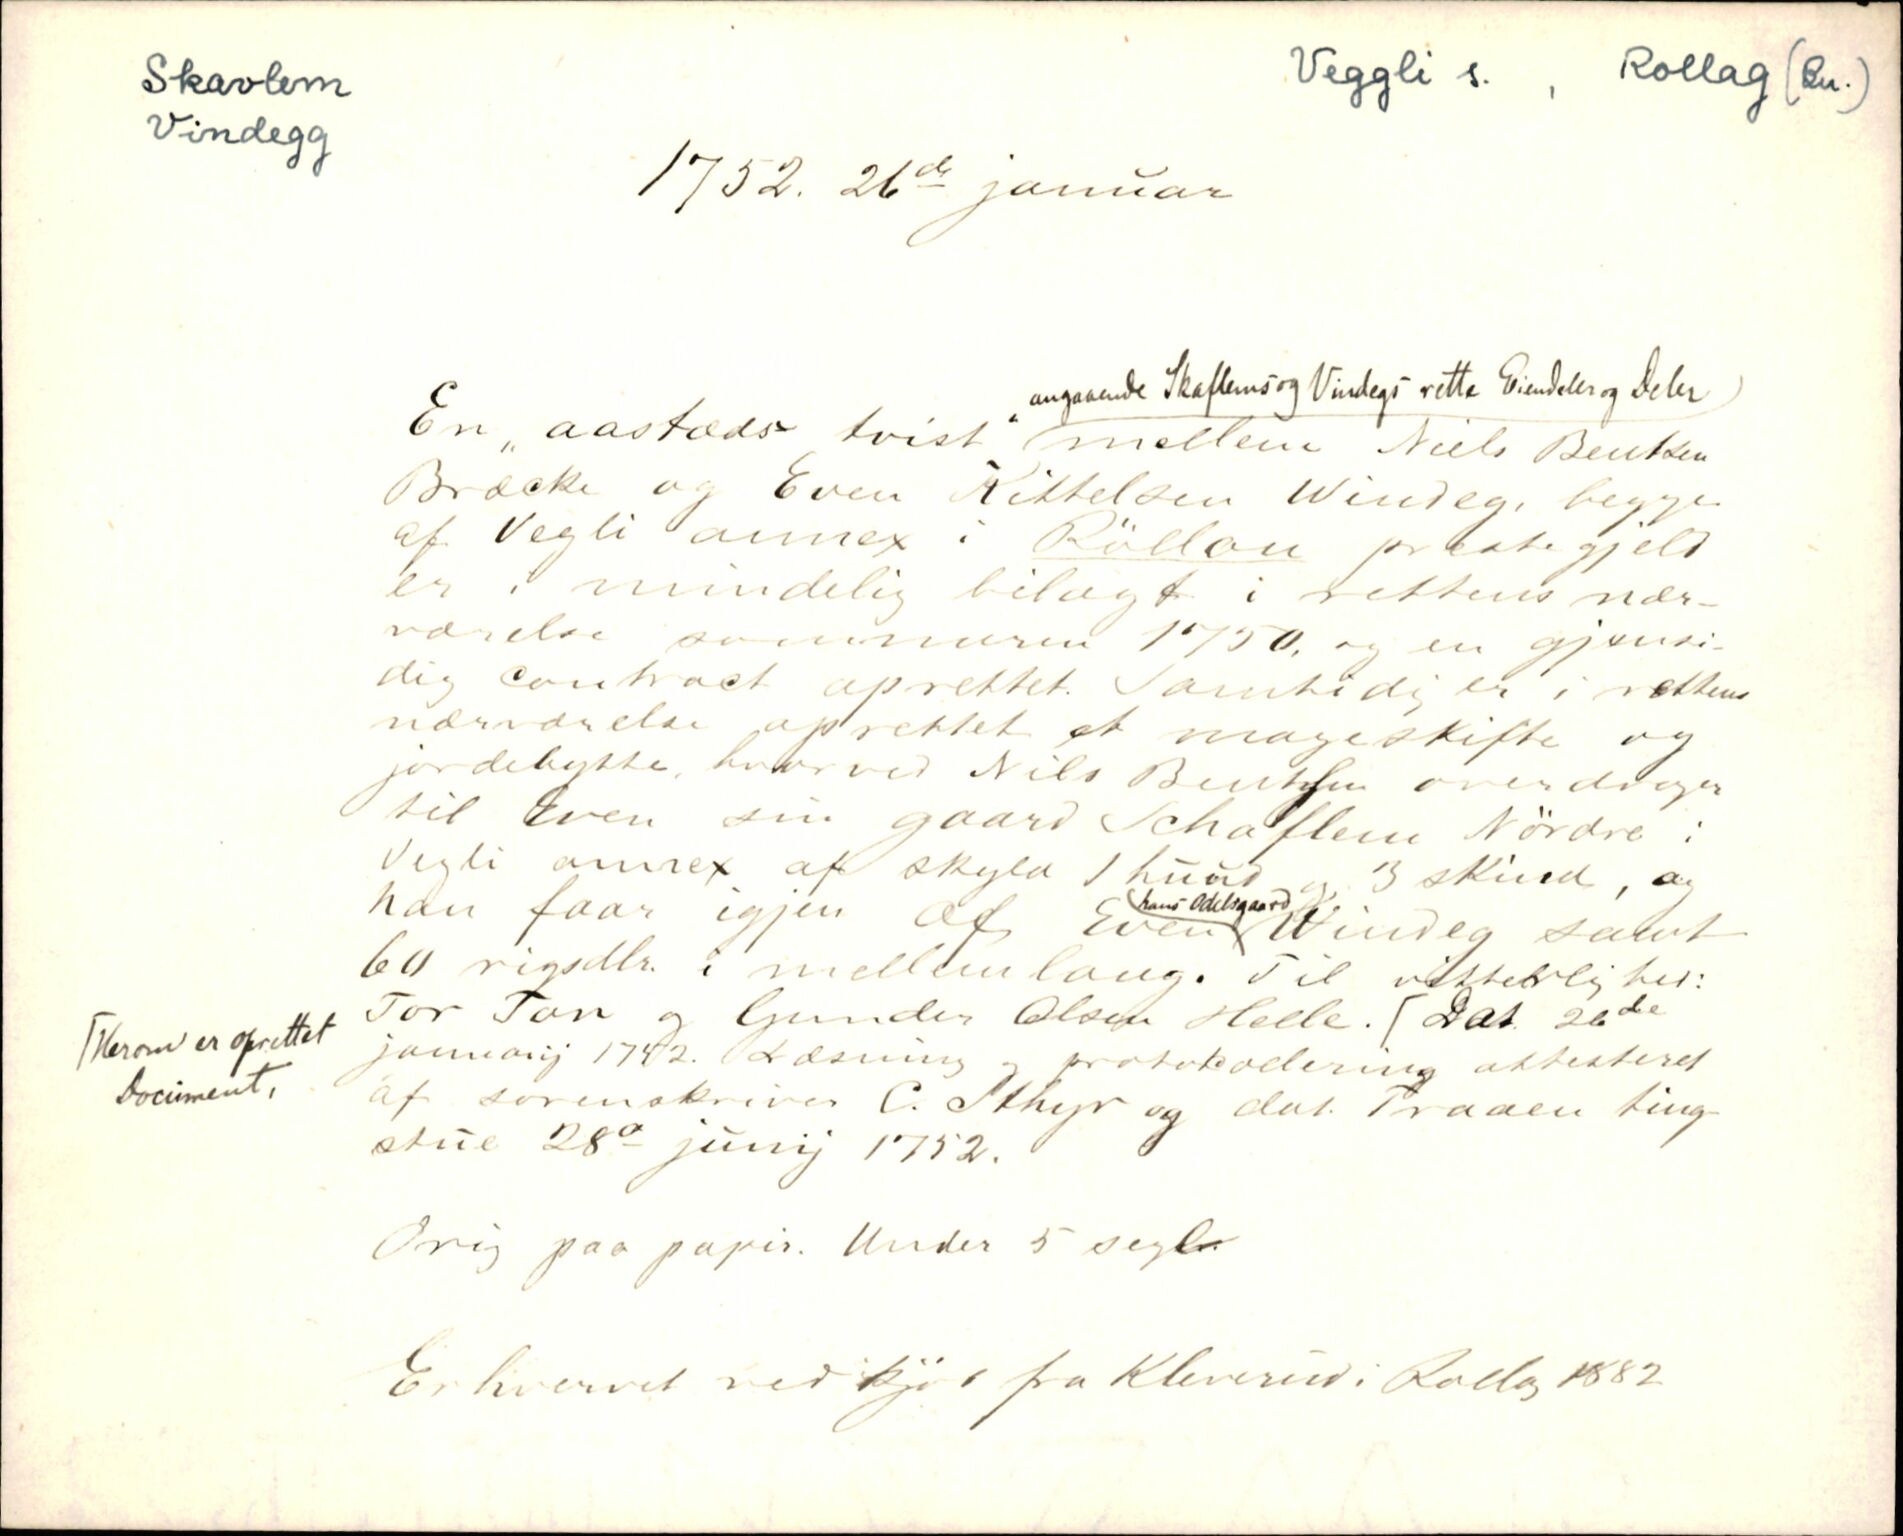 Skavlem
Vindegg
Veggli s. , Rollag (Bu.)
1752. 26de januar
angaaende Skaflems og Vindegs rette Eiendeler og Deler
En „aastæds tvist" mellem Niels Bentsen
Bræcke og Even Kittelsen Windeg, begge
af Vegli annex i Röllou prestegjeld
er i mindelig bilagt i rettens nær-
værelse sommeren 1750, og en gjensi-
dig contract oprettet. Samtidig er i rettens
nærværelse oprettet et mageskifte og
jordebytte, hvorved Nils Bentsen overdrager
til Even sin gaard Schaflem Nördre i
Vegli annex af skyld 1 huud og 3 skind, og
han faar igjen af Even hans Odelsgaard Windeg samt
60 rigsdlr. i mellemlaug. Til vitterlighed:
Tor Ton og Gunder Olsen Helle. [Dat. 26de
[Herom er oprettet
Document,
januarij 1752. Læsning og protokollering attesteret
af sorenskriver C. Sthyr og dat. Traaen ting
stue 28a junij 1752.
Orig paa papir. Under 5 segl.
Erhvervet ved kjöb fra Kleverud i Rollag 1882